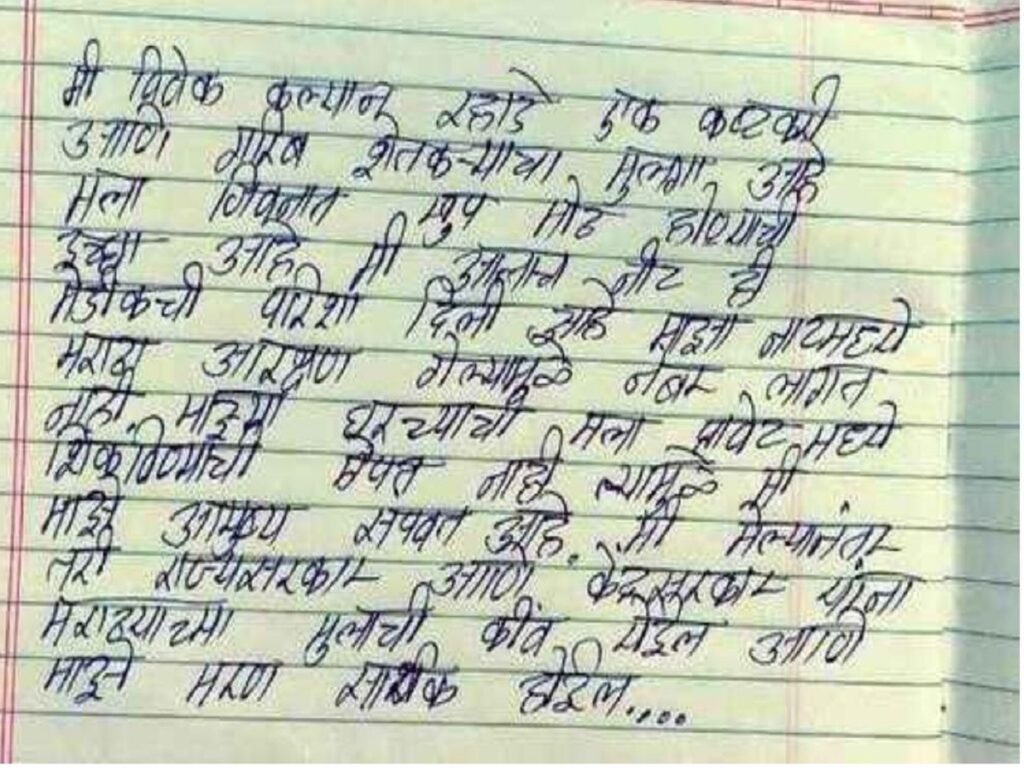 मी विवेक कल्यान रहाडे एक कष्टकरी
आणि गरिब शेतकऱ्याचा मुलगा आहे
मला जिवनात खुप मोठ होण्याची
इच्छा आहे मी आताच नीट ही
मेडीकची परिक्षा दिली आहे माझा नीटमध्ये
मराठा आरक्षण गेल्यामुळे नंबर लागत
नाही. माझ्या घरच्याची मला प्रावेट मध्ये
शिकविण्याची ऐपत नाही त्यामुळे मी
माझे आयुष्य संपवत आहे. मी मेल्यानंतर
तरी राज्यसरकार आणि केंद्रसरकार यांना
मराठ्याच्या मुलाची कीव येईल आणि
माझे मरण सार्थक होईल....